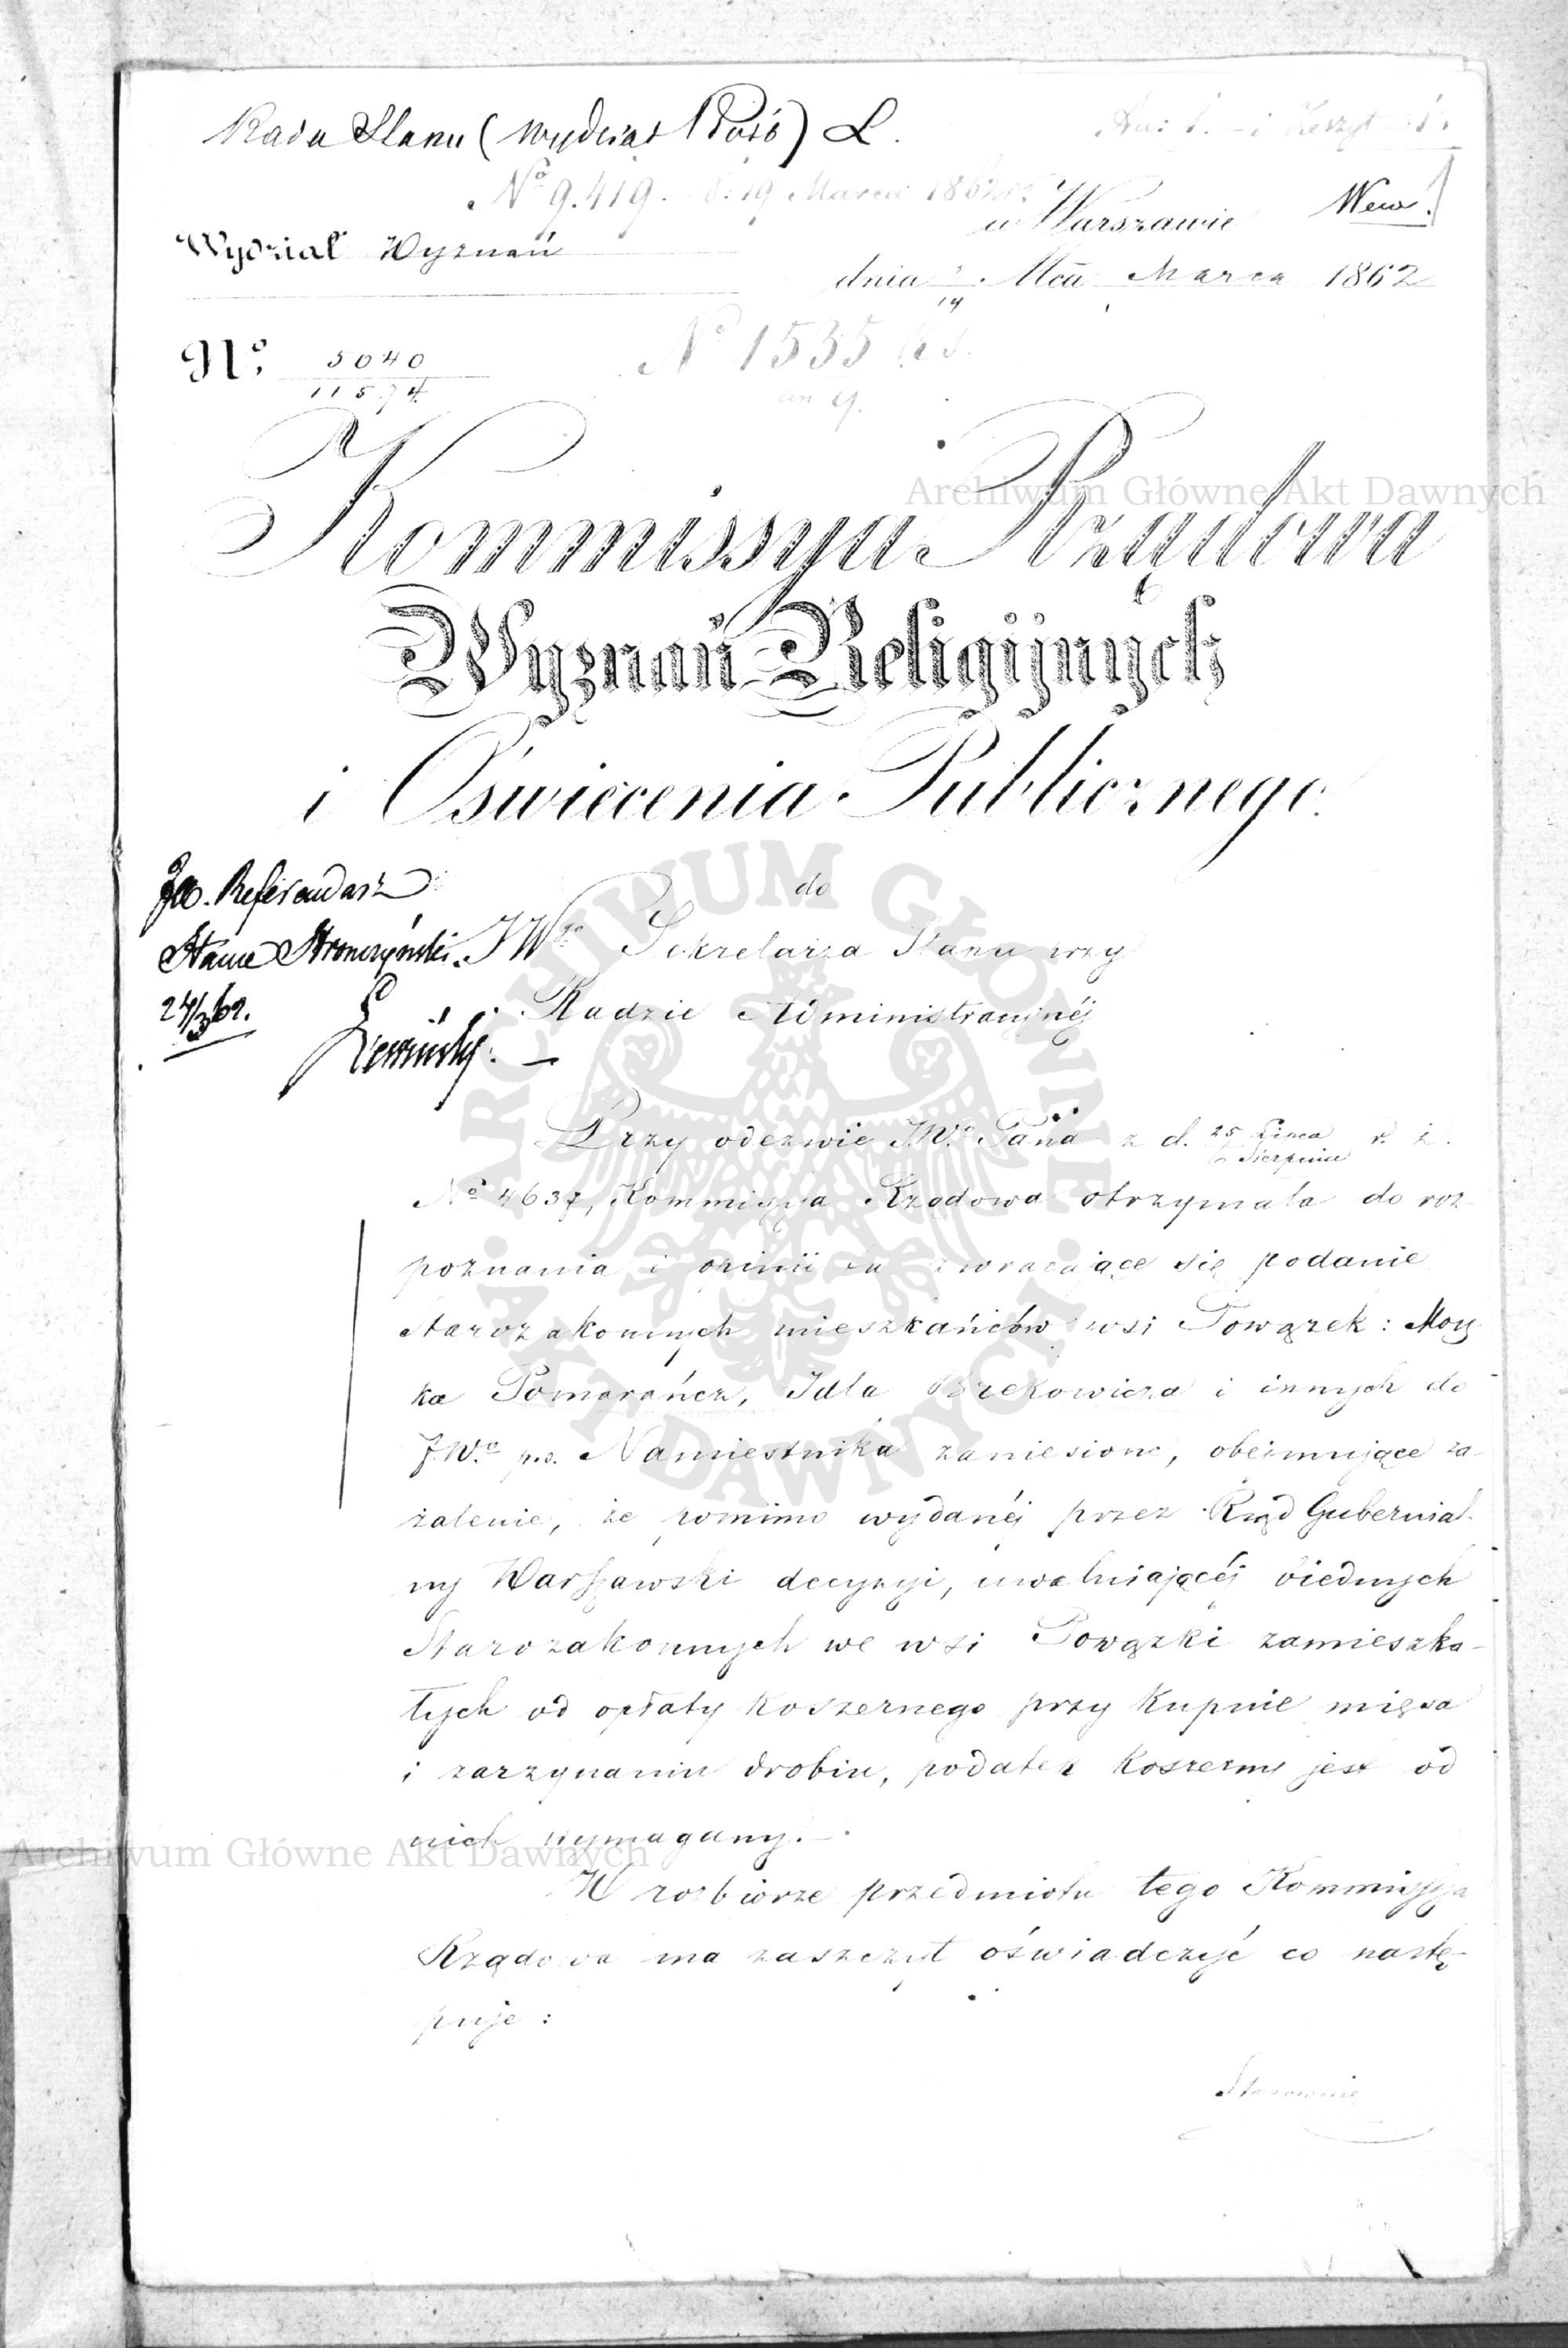 Rada Stanu (Wydział Próśb) L.
Nº 9.419. d: 19 Marca 1862 r.
w Warszawie
Wydział Wyznań
dnia 2/14 Mca Marca 1862
Nº 5040
11574
Nº 1535
Kommissya Rządowa
Wyznań Religijnych
i Oświecenia Publicznego.
do
JWgo Sekretarza Stanu przy
Radzie Administracyjnéj
Referendarz
Stanu Stronczyński.
24/3 62.
Przy odezwie J.W. Pana z d. 25 Lipca / 6 Sierpnia r. z.
Nº 4637, Kommissya Rządowa otrzymała do roz-
poznania i opinii tu zwracające się podanie
Starozakonnych mieszkańców wsi Powązek: Mosz
ka Pomarańcz, Idla Berkowicza i innych do
J.Wº p.o. Namiestnika zaniesione, obejmujące za-
żalenie, że pomimo wydanéj przez Rząd Gubernial-
ny Warszawski decyzyi, uwalniającéj biednych
Starozakonnych we wsi Powązki zamieszka-
łych od opłaty koszernego przy kupnie mięsa
i zarzynaniu drobiu, podatek koszerny jest od
nich wymagany.-
W rozbiorze przedmiotu tego Kommissya
Rządowa ma zaszczyt oświadczyć co nastę-
puje:
Stosownie
Archiwum Główne Akt Dawnych
Archiwum Główne Akt Dawnych
ARCHIWUM GŁÓWNE AKT DAWNYCH